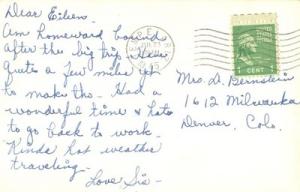 Dear Eileen
Am homeward bound
after the big trip. Have
Quite a few miles yet
to make tho. Had a
wonderful time & hate
to go back to work.
Kinda hot weather
traveling.
Love Sis
UNITED STATES
POSTAGE
1 CENT 1
Mrs. D. Bernstein
1612 Milwaukee
Denver, Colo.